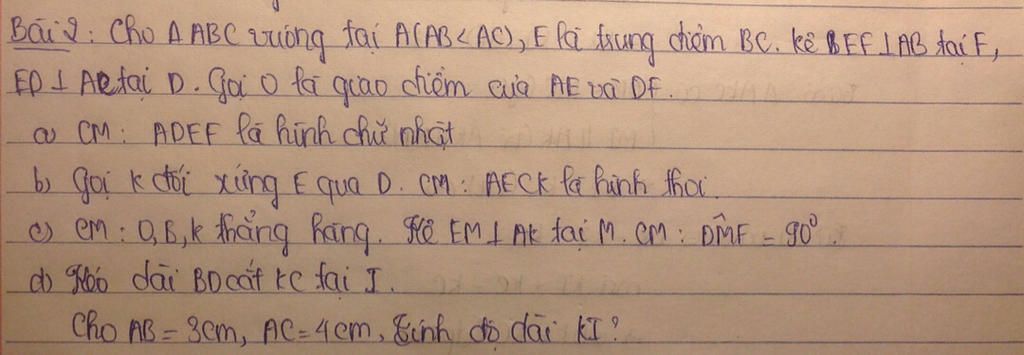 Bài 2: Cho Δ ABC vuông tại A(AB < AC), E là trung điểm BC. kẻ EF ⊥ AB tại F,
ED ⊥ AC tại D. Gọi O là giao điểm của AE và DF.
a) CM: ADEF là hình chữ nhật
b) Gọi K đối xứng E qua D. CM: AECK là hình thoi.
c) CM: O, B, K thẳng hàng. Kẻ EM ⊥ AK tại M. CM: DM̂F = 90⁰.
d) Kéo dài BD cắt KC tại I.
Cho AB = 3cm, AC = 4cm, Tính độ dài KI?